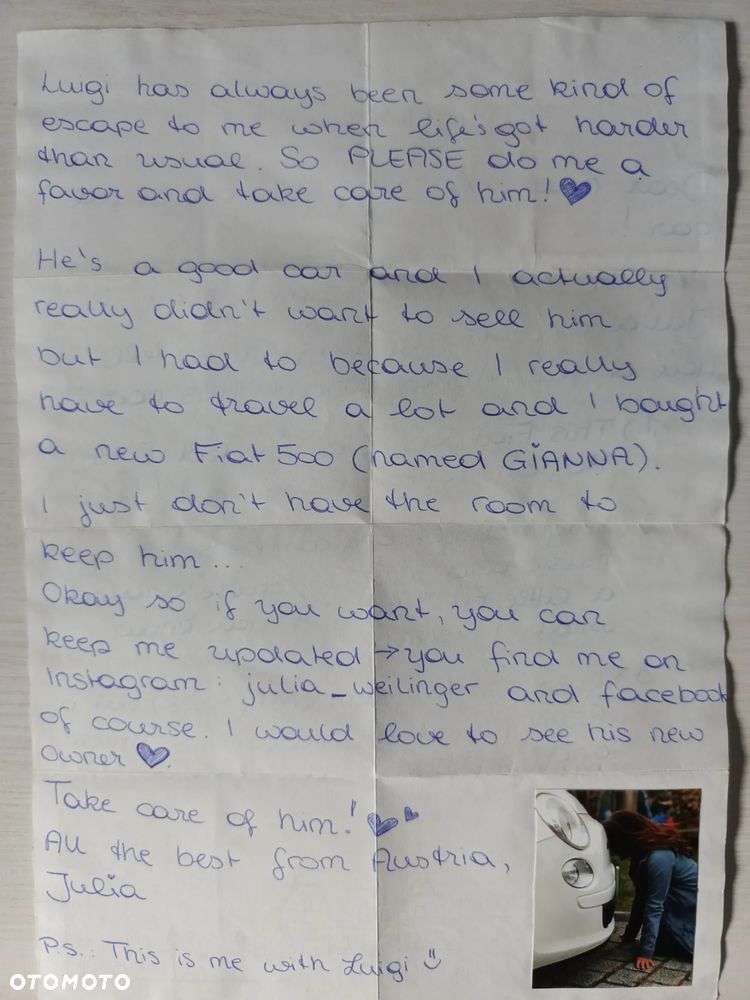 Luigi has always been some kind of
escape to me when life's got harder
than usual. So PLEASE do me a
favor and take care of him! ♥
He's a good car and I actually
really didn't want to sell him
but I had to because I really
have to travel a lot and I bought
a new Fiat 500 (named GIANNA).
I just don't have the room to
keep him ...
Okay so if you want, you can
keep me updated → you find me on
Instagram: julia_weilinger and facebook
of course. I would love to see his new
owner ♥.
Take care of him! ♥♥
All the best from Austria,
Julia
P.S.: This is me with Luigi :)
OTOMOTO